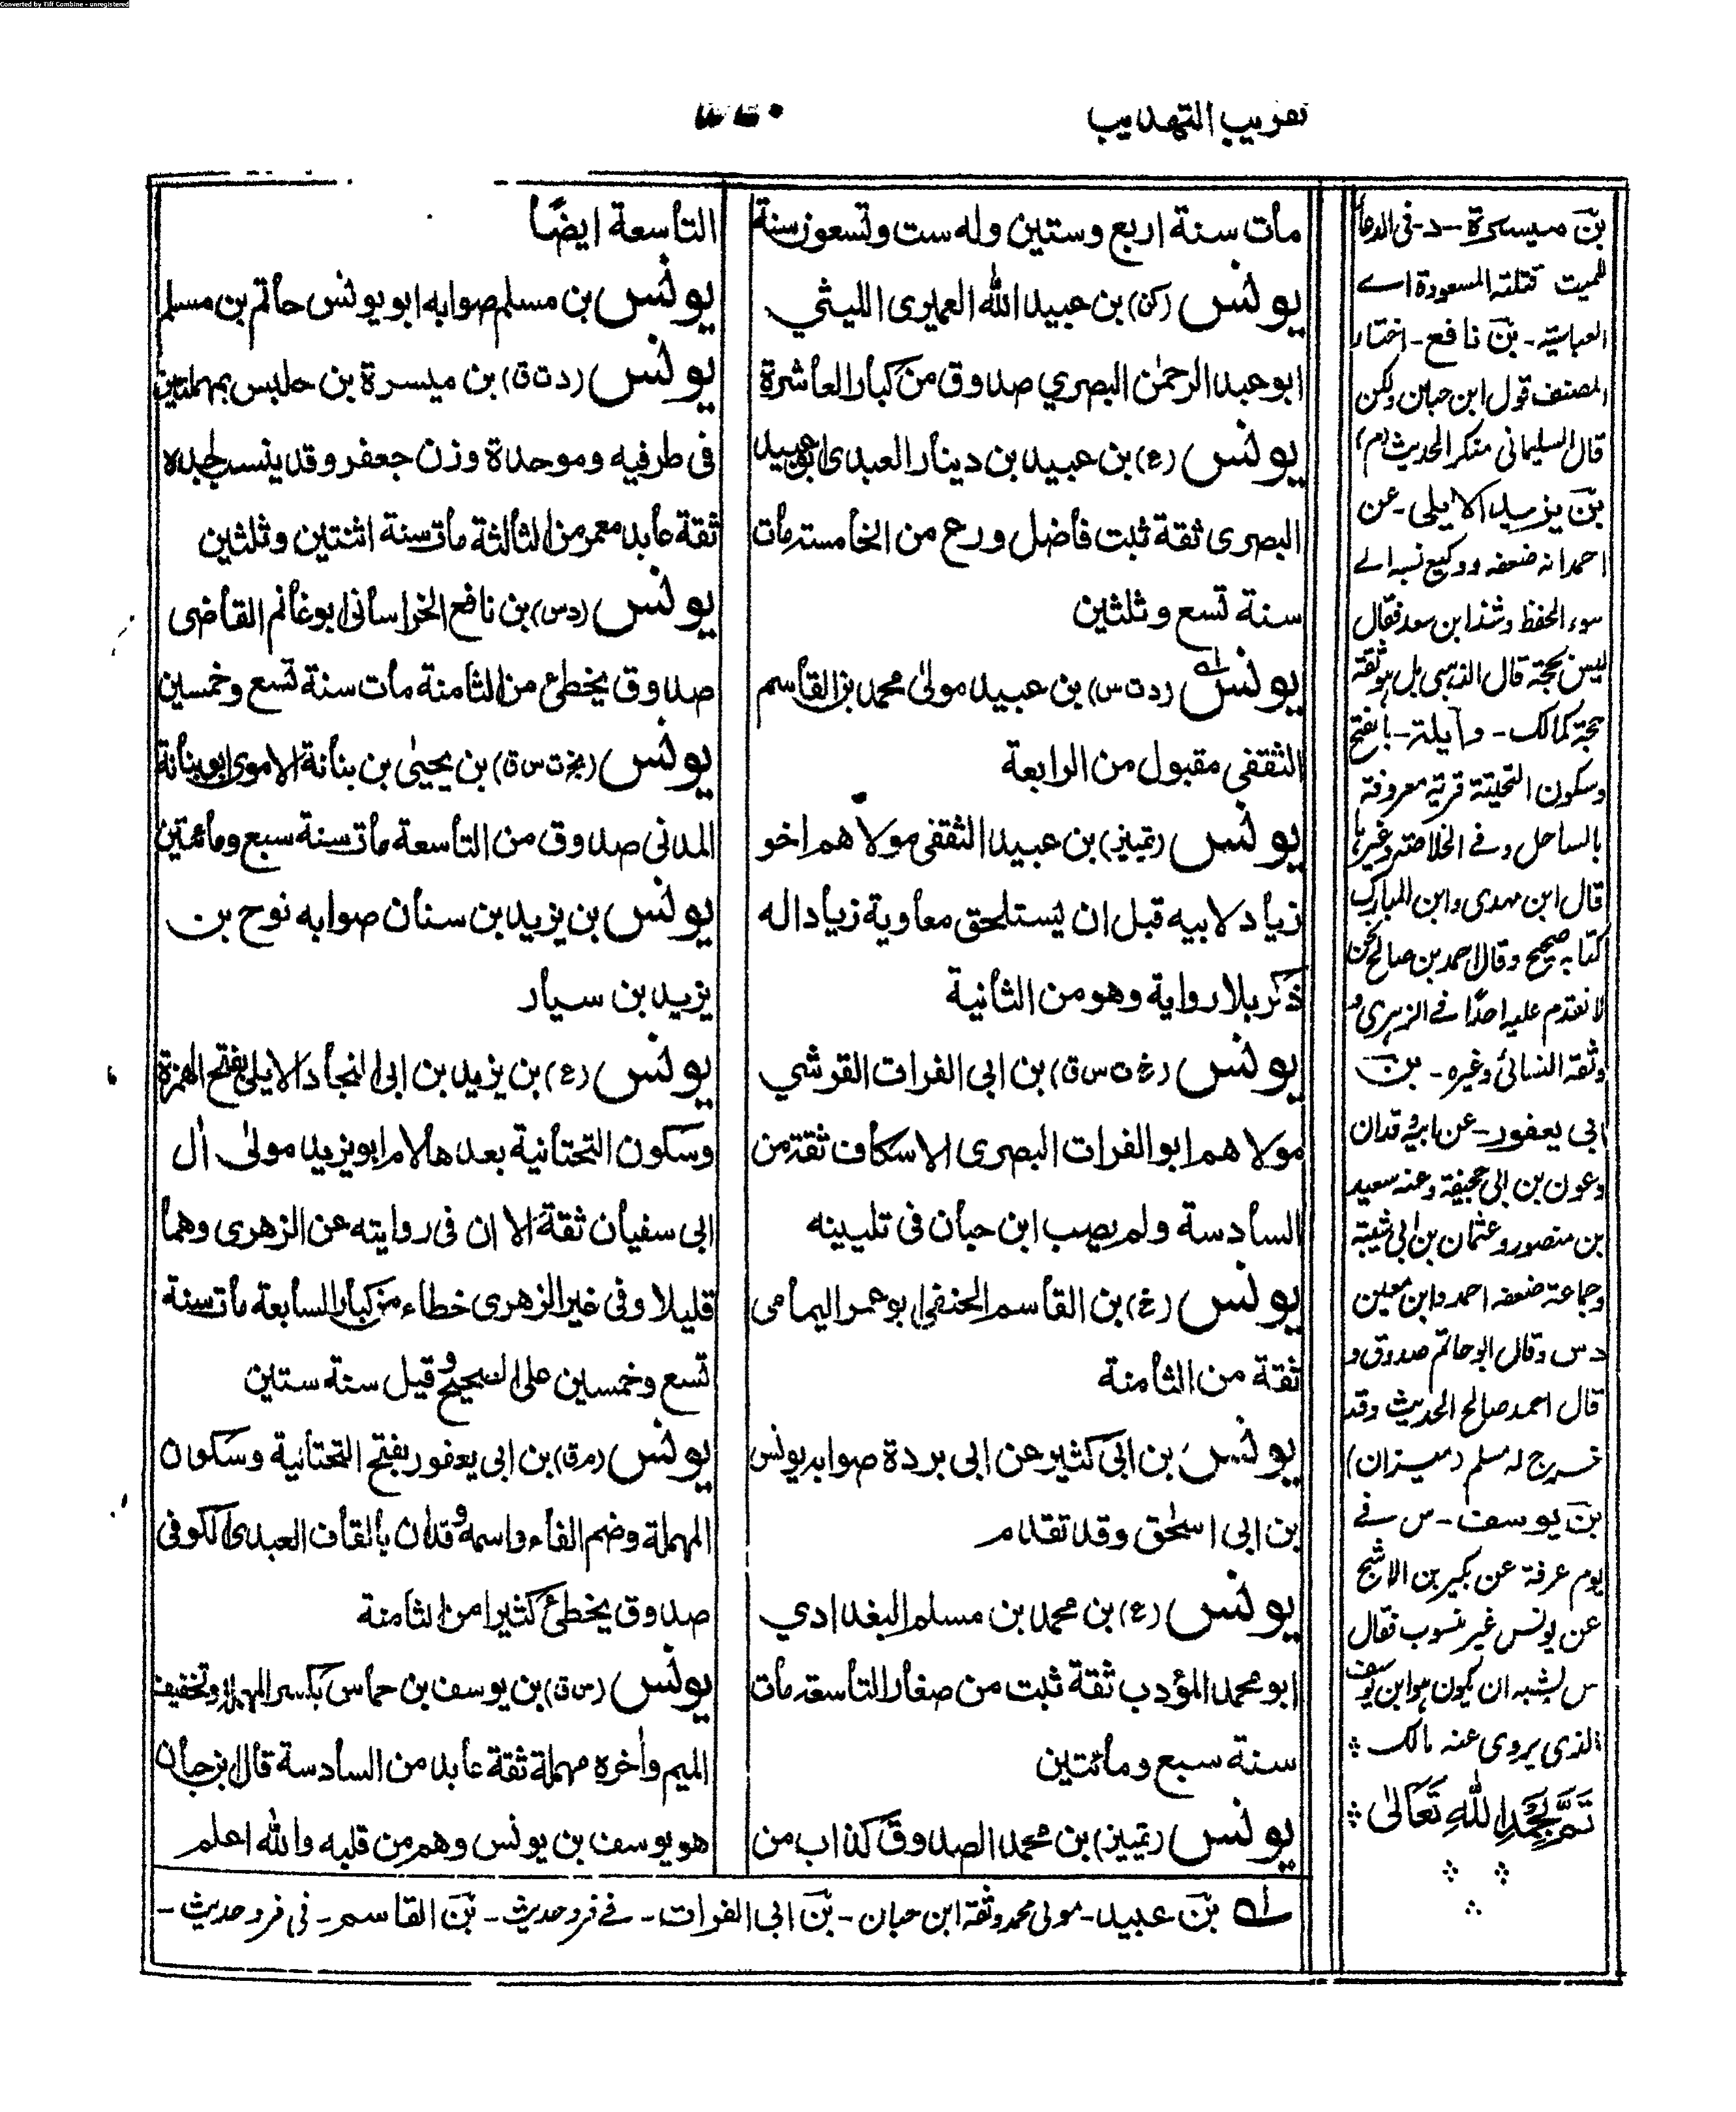 Converted by Tiff Combine - unregistered
تقريب التهذيب
مات سنة اربع وستين وله ست وتسعون سنة
يونس (كن) بن عبيد الله العميرى الليثي
ابو عبد الرحمٰن البصري صدوق من كبار العاشرة
يونس (ع) بن عبيد بن دينار العبدى ابو عبيد
البصرى ثقة ثبت فاضل ورع من الخامسة مات
سنة تسع وثلثين
يونس (د ت س) بن عبيد مولىٰ محمد بن القاسم
الثقفى مقبول من الرابعة
يونس (تمييز) بن عبيد الثقفى مولاهم اخو
زياد لابيه قبل ان يستلحق معاوية زيادا له
ذكر بلا رواية وهو من الثانية
يونس (خ ت س ق) بن ابى الفرات القرشي
مولاهم ابو الفرات البصرى الاسكاف ثقة من
السادسة ولم يصب ابن حبان فى تليينه
يونس (خ) بن القاسم الحنفى ابو عمر اليمامى
ثقة من الثامنة
يونس بن ابى كثير عن ابى بردة صوابه يونس
بن ابى اسحٰق وقد تقدم
يونس (ع) بن محمد بن مسلم البغدادي
ابو محمد المؤدب ثقة ثبت من صغار التاسعة مات
سنة سبع ومائتين
يونس (تمييز) بن محمد الصدوق كذاب من
التاسعة ايضًا
يونس بن مسلم صوابه ابو يونس حاتم بن مسلم
يونس (د ت ق) بن ميسرة بن حلبس بمهملتين
فى طرفيه وموحدة وزن جعفر وقد ينسب لجده
ثقة عابد معمر من الثالثة مات سنة اثنتين وثلثين
يونس (د س) بن نافع الخراسانى ابو غانم القاضى
صدوق يخطئ من الثامنة مات سنة تسع وخمسين
يونس (بخ ت س ق) بن يحيىٰ بن بنانة الاموى ابو بنانة
المدنى صدوق من التاسعة مات سنة سبع ومائتين
يونس بن يزيد بن سنان صوابه نوح بن
يزيد بن سيار
يونس (ع) بن يزيد بن ابى النجاد الايلى بفتح الهمزة
وسكون التحتانية بعدها لام ابو يزيد مولىٰ اٰل
ابى سفيان ثقة الا ان فى روايته عن الزهرى وهما
قليلا وفى غير الزهرى خطاء من كبار السابعة مات سنة
تسع وخمسين على الصحيح وقيل سنة ستين
يونس (م ق) بن ابى يعفور بفتح التحتانية وسكون
المهملة وضم الفاء واسمه وقدان بالقاف العبدى الكوفى
صدوق يخطئ كثيرا من الثامنة
يونس (س ق) بن يوسف بن حماس بكسر المهملة وتخفيف
الميم واٰخره مهملة ثقة عابد من السادسة قال ابن حبان
هو يوسف بن يونس وهم من قلبه والله اعلم
بن ميسرة - د - فى الدعاء
للميت قتلته المسودة اے
العباسية - بن نافع - اختار
المصنف قول ابن حبان ولكن
قال السليمانى منكر الحديث (م)
بن يزيد الايلى - عن
احمد انه ضعفه ووكيع نسبه الے
سوء الحفظ وشذ ابن سعد فقال
ليس بحجة قال الذهبى بل هو ثقة
حجة كمالك - وايلة - بالفتح
وسكون التحتية قرية معروفة
بالساحل وفے الخلاصة وغيرها
قال ابن مهدى وابن المبارك
كتابه صحيح وقال احمد بن صالح نحن
لا نقدم عليه احدًا فے الزهرى و
وثقه النسائى وغيره - بن
ابى يعفور - عن ابيه وقدان
وعون بن ابى جحيفة وعنه سعيد
بن منصور وعثمان بن ابى شيبة
وجماعة ضعفه احمد وابن معين
د س وقال ابو حاتم صدوق و
قال احمد صالح الحديث وقد
خرج له مسلم (ميزان)
بن يوسف - س فے
يوم عرفة عن بكير بن الاشج
عن يونس غير منسوب فقال
س يشبه ان يكون هو ابن يوسف
الذى يروى عنه مالك
تَمَّ بِحَمْدِ اللّٰهِ تَعَالىٰ
لـه بن عبيد - مولى محمد وثقه ابن حبان - بن ابى الفرات - فے فرد حديث - بن القاسم - فى فرد حديث -